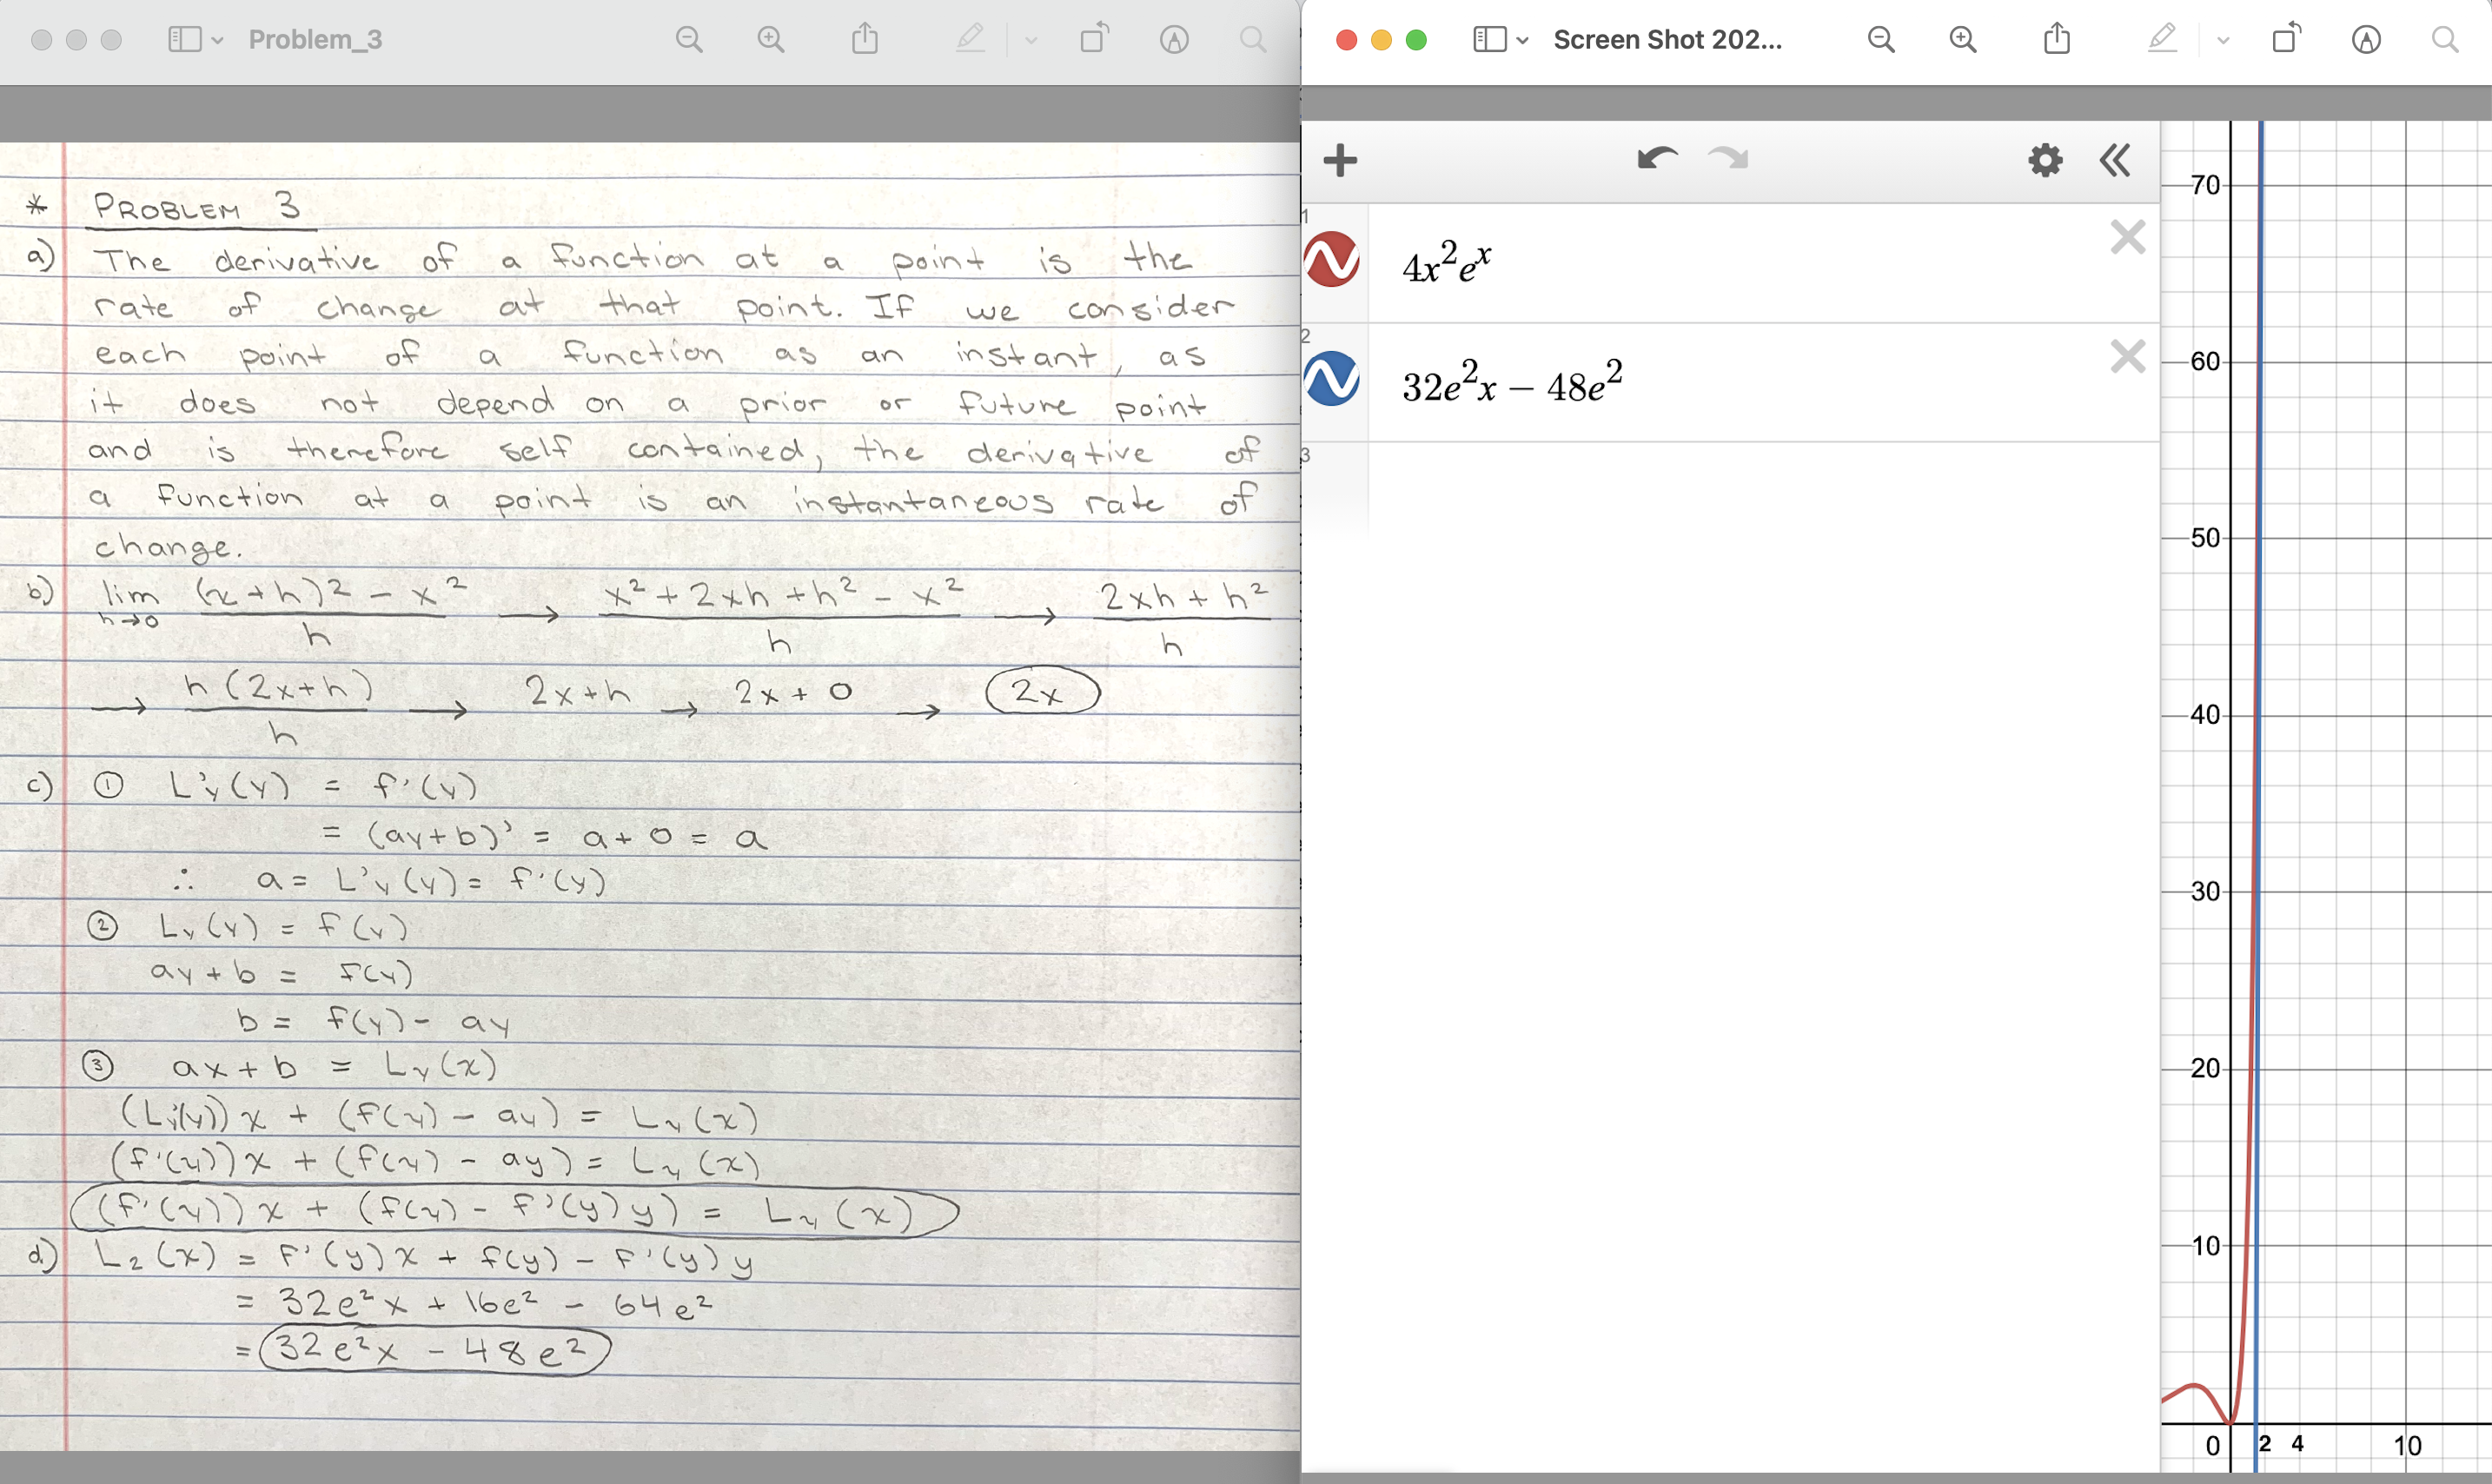 Problem_3
Screen Shot 202...
* PROBLEM 3
a) The derivative of a function at a point is the
rate of change at that point. If we consider
each point of a function as an instant, as
it does not depend on a prior or future point
and is therefore self contained, the derivative of
a function at a point is an instantaneous rate of
change.
b) lim h→0 ((x+h)² − x²)/h → (x² + 2xh + h² − x²)/h → (2xh + h²)/h
→ h(2x+h)/h → 2x+h → 2x + 0 → 2x
c) ① L'y(y) = f'(y)
= (ay+b)' = a + 0 = a
∴ a = L'y(y) = f'(y)
② Ly(y) = f(y)
ay + b = f(y)
b = f(y) − ay
③ ax + b = Ly(x)
(L'y(y))x + (f(y) − ay) = Ly(x)
(f'(y))x + (f(y) − ay) = Ly(x)
(f'(y))x + (f(y) − f'(y)y) = Ly(x)
d) L2(x) = f'(y)x + f(y) − f'(y)y
= 32e²x + 16e² − 64e²
= 32e²x − 48e²
1
4x²eˣ
2
32e²x − 48e²
3
70
60
50
40
30
20
10
0 2 4 10